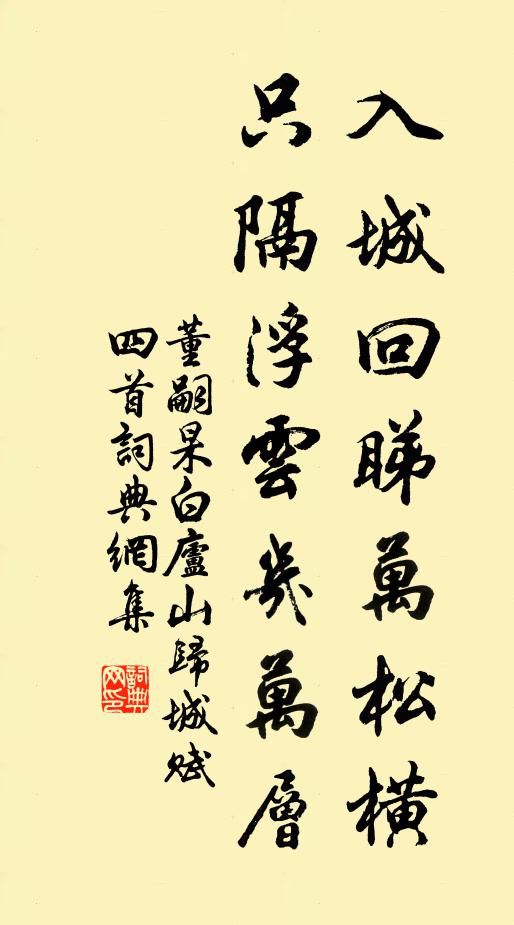 入城回睇萬松橫
只隔浮雲幾萬層
董嗣杲白廬山歸城賦
四首詞典網集
詞典网印